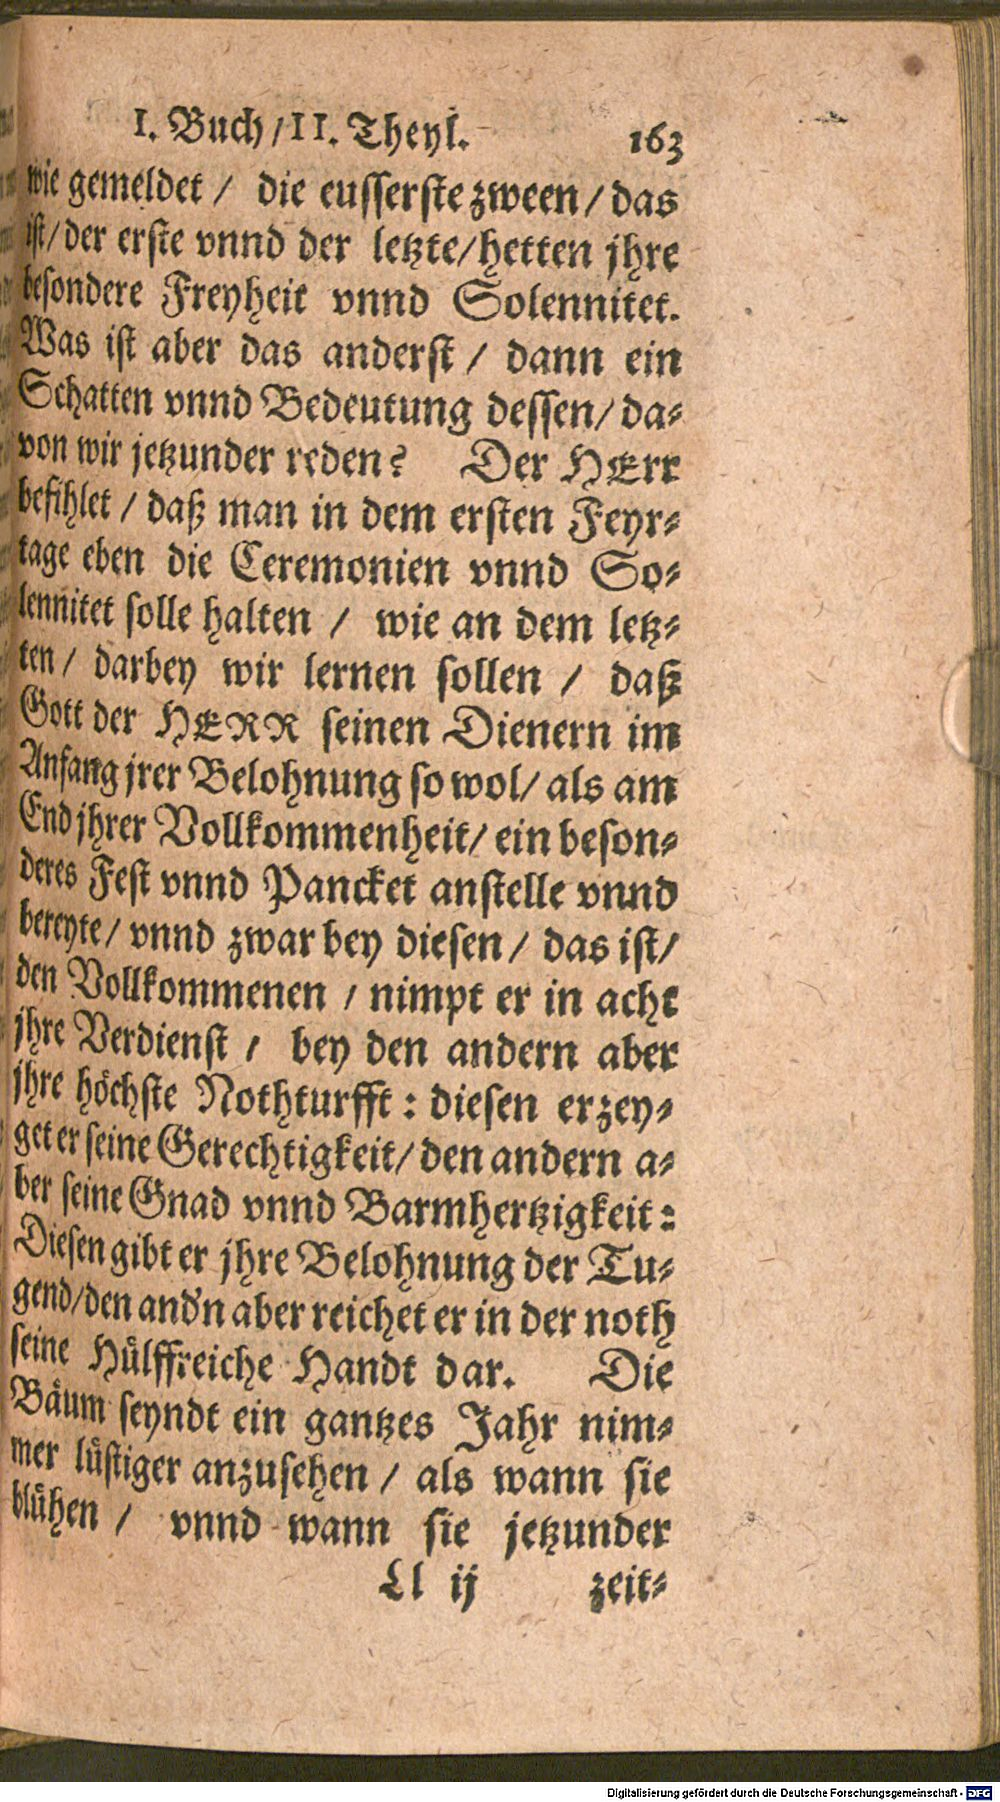 I. Buch / II. Theyl. 163
wie gemeldet / die eusserste zween / das
ist / der erste vnnd der letzte / hetten jhre
besondere Freyheit vnnd Solennitet.
Was ist aber das anderst / dann ein
Schatten vnnd Bedeutung dessen / da-
von wir jetzunder reden? Der HErr
befihlet / daß man in dem ersten Feyr-
tage eben die Ceremonien vnnd So-
lennitet solle halten / wie an dem letz-
ten / darbey wir lernen sollen / daß
Gott der HERR seinen Dienern im
Anfang jrer Belohnung so wol / als am
End jhrer Vollkommenheit / ein beson-
deres Fest vnnd Pancket anstelle vnnd
bereyte / vnnd zwar bey diesen / das ist /
den Vollkommenen / nimpt er in acht
jhre Verdienst / bey den andern aber
jhre höchste Nothturfft: diesen erzey-
get er seine Gerechtigkeit / den andern a-
ber seine Gnad vnnd Barmhertzigkeit:
Diesen gibt er jhre Belohnung der Tu-
gend / den and'n aber reichet er in der noth
seine Hülffreiche Handt dar. Die
Bäum seyndt ein gantzes Jahr nim-
mer lüstiger anzusehen / als wann sie
blühen / vnnd wann sie jetzunder
Ll ij zeit-
Digitalisierung gefördert durch die Deutsche Forschungsgemeinschaft - DFG